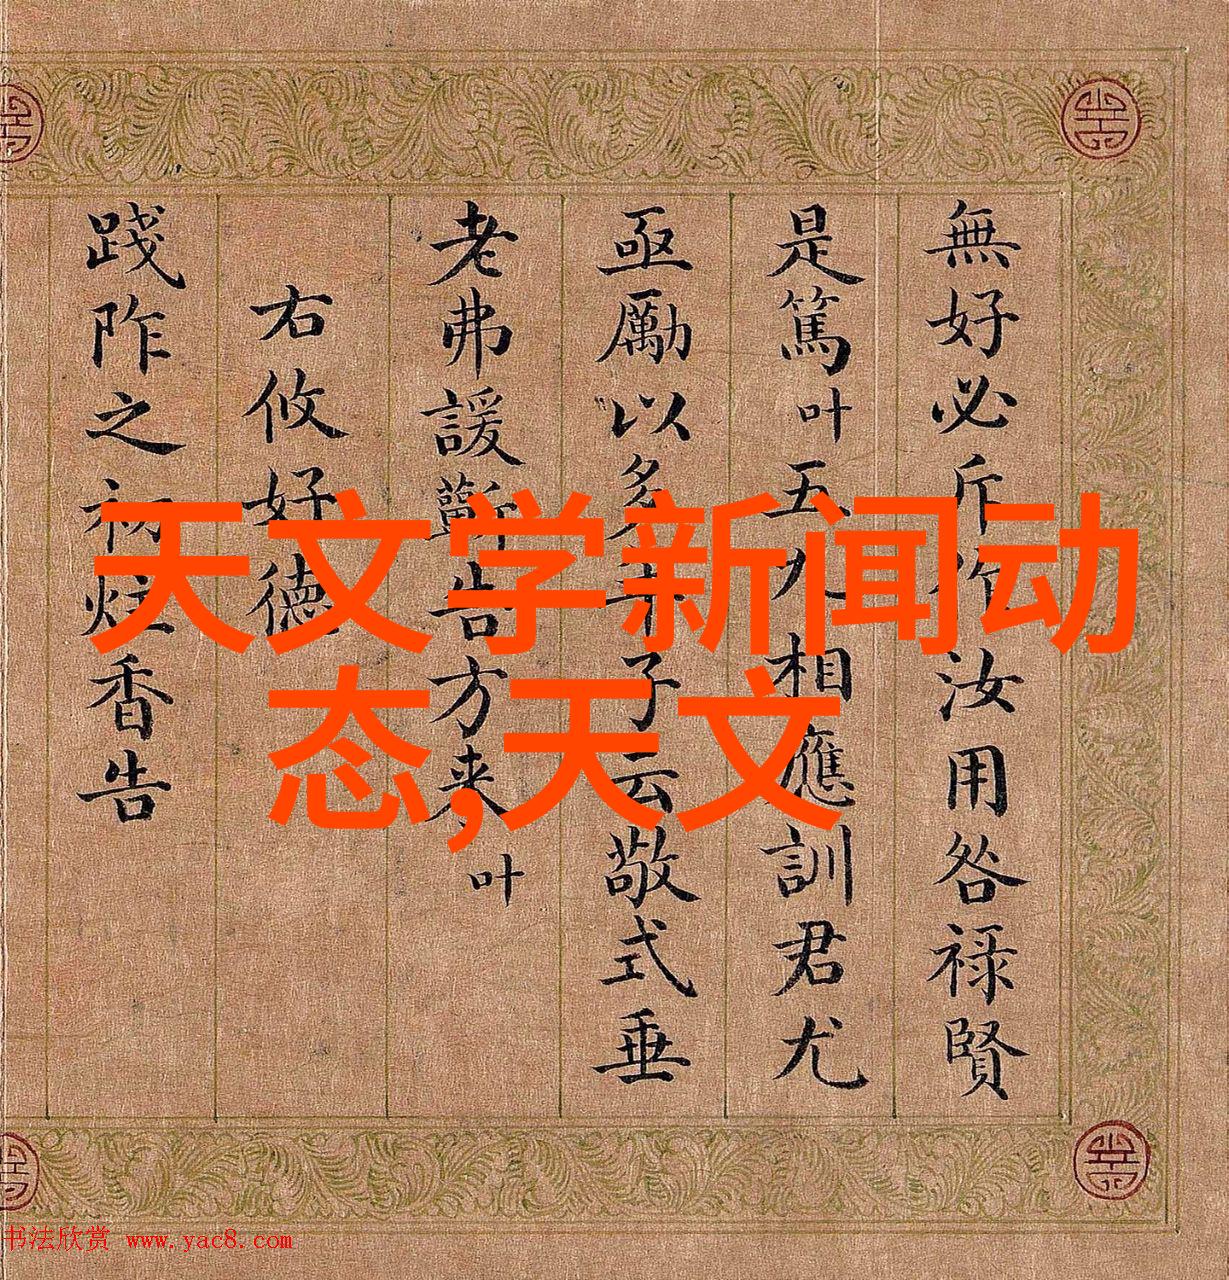 無好必斥作汝用咎祿賢
是篤叶五九相應訓君尤
亟勵以多子云敬式垂
老弗諼蘄告方来叶
右攸好德
踐阼之初炷香告
天文学新闻动
态,天文
书法欣赏 www.yac8.com